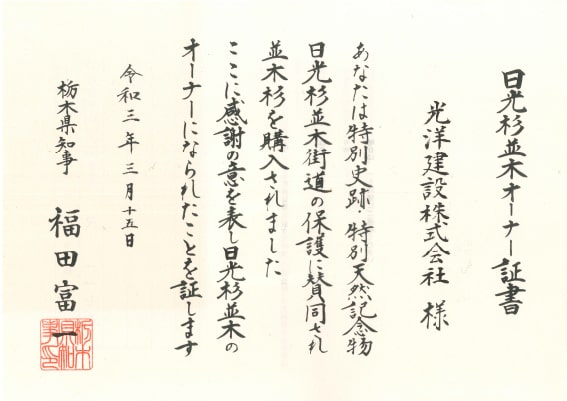 日光杉並木オーナー証書
光洋建設株式会社 様
あなたは特別史跡・特別天然記念物
日光杉並木街道の保護に賛同され
並木杉を購入されました
ここに感謝の意を表し日光杉並木の
オーナーになられたことを証します
令和三年三月十五日
栃木県知事
福田富一
栃木県知事之印